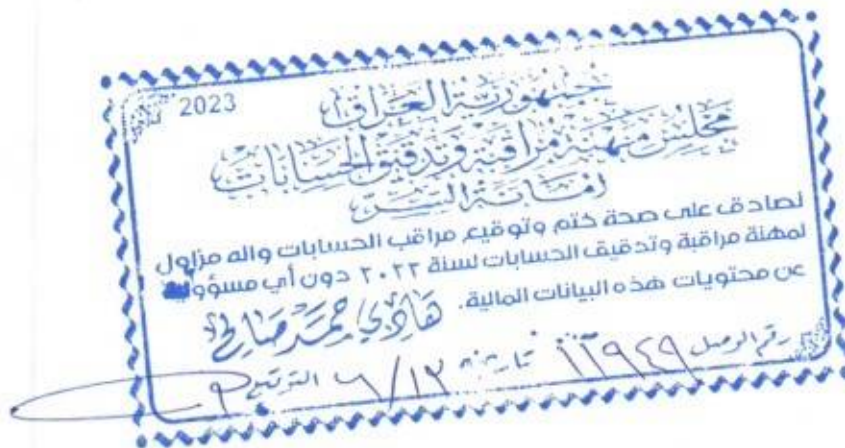 2023
جمهورية العراق
مجلس مهنة مراقبة وتدقيق الحسابات
امانة السر
نصادق على صحة ختم وتوقيع مراقب الحسابات واله مزاول
لمهنة مراقبة وتدقيق الحسابات لسنة ٢٠٢٢ دون أي مسؤولية
عن محتويات هذه البيانات المالية.
هادي حمد صالح
رقم الوصل ١١٩٤٩ تاريخه ٦/١٢ التوقيع